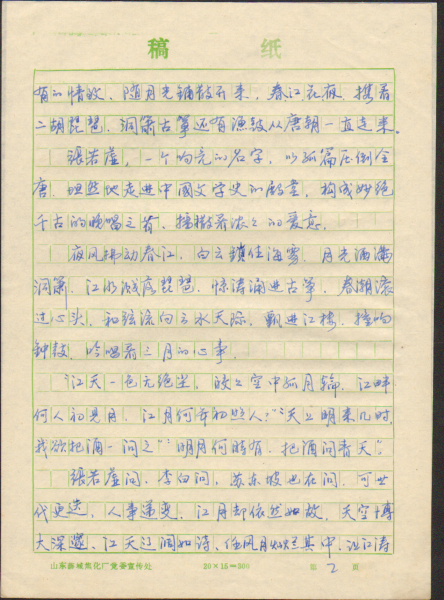 稿 纸
有的情致，随月光铺散开来，春江花夜，携着
二胡琵琶，洞箫古筝还有渔鼓从唐朝一直走来。
张若虚，一个响亮的名字，以孤篇压倒全
唐，坦然地走进中国文学史的殿堂，构成妙绝
千古的晚唱之音，挥撒着浓浓的爱意。
夜风拂动春江，白云锁住海雾，月光洒满
洞箫，江水溅落琵琶，惊涛涌进古筝，春潮滚
过心头，和弦流向云水天际，飘进江楼，撞响
钟鼓，吟唱着三月的心事。
"江天一色无纤尘，皎皎空中孤月轮，江畔
何人初见月，江月何年初照人？""天上明来几时，
我欲把酒一问之"："明月何时有，把酒问青天"。
张若虚问，李白问，苏东坡也在问，可世
代更迭，人事递变，江月却依然如故，天空博
大深邃，江天辽阔如诗，任风月灿烂其中，让江涛
山东薛城焦化厂党委宣传处 20×15=300 第 2 页